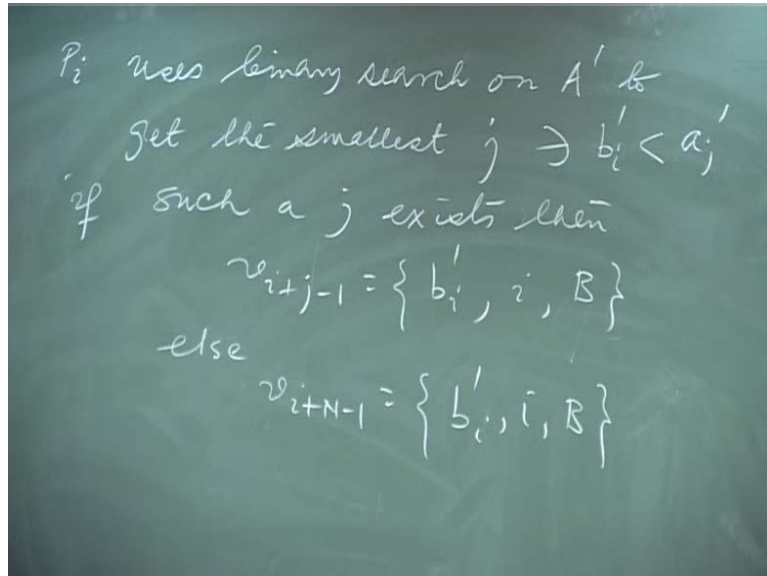 Pᵢ uses binary search on A' to
get the smallest j ∋ b'ᵢ < a'ⱼ
if such a j exists then
v_{i+j-1} = { b'ᵢ, i, B }
else
v_{i+N-1} = { b'ᵢ, i, B }